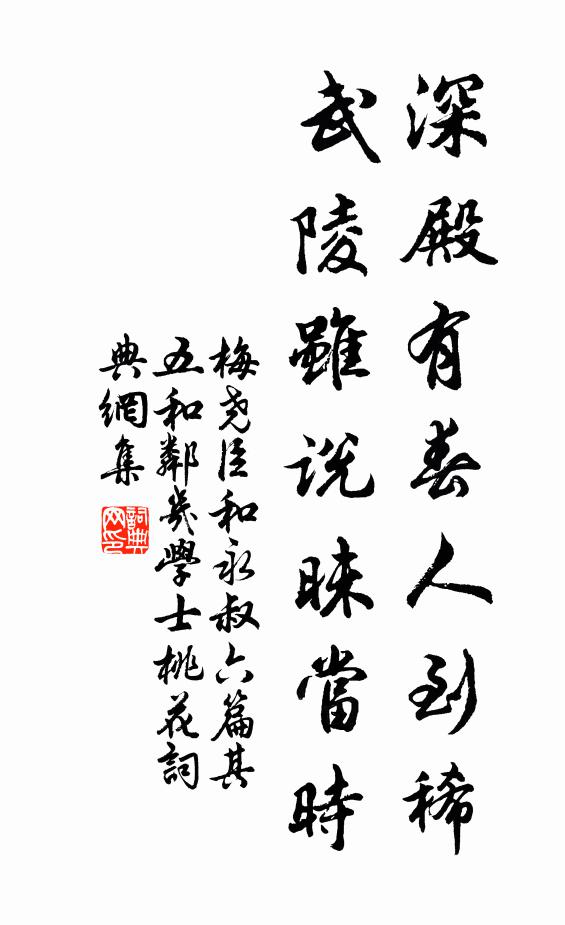 深殿有春人到稀
武陵雖説昧當時
梅堯臣和永叔六篇其
五和鄰幾學士桃花詞
典網集
詞典網印